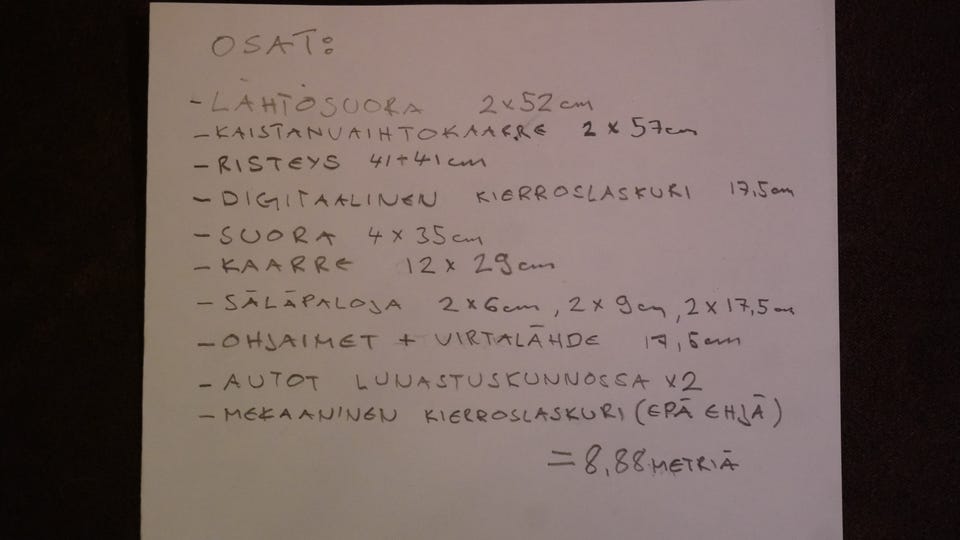 OSAT:
- LÄHTÖSUORA 2 x 52 cm
- KAISTANVAIHTOKAARRE 2 x 57cm
- RISTEYS 41+41cm
- DIGITAALINEN KIERROSLASKURI 17,5cm
- SUORA 4 x 35cm
- KAARRE 12 x 29cm
- SÄLÄPALOJA 2x6cm, 2x9cm, 2x17,5cm
- OHJAIMET + VIRTALÄHDE 17,5cm
- AUTOT LUNASTUSKUNNOSSA x2
- MEKAANINEN KIERROSLASKURI (EPÄ EHJÄ)
= 8,88 METRIÄ